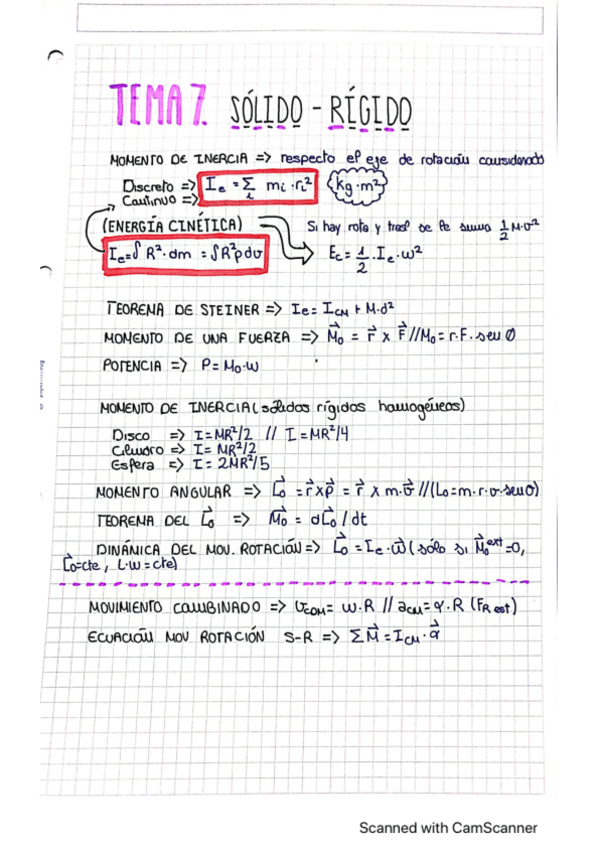 TEMA 7. SÓLIDO - RÍGIDO
MOMENTO DE INERCIA => respecto el eje de rotación considerado
Discreto => I_e = Σ_i m_i · r_i² kg·m²
Continuo =>
(ENERGÍA CINÉTICA) Si hay rota y trasl se le suma 1/2 M·v²
I_e = ∫ R² · dm = ∫ R² ρ dv E_c = 1/2 · I_e · w²
TEOREMA DE STEINER => I_e = I_CM + M·d²
MOMENTO DE UNA FUERZA => M⃗_o = r⃗ x F⃗ // M_o = r·F·sen Ø
POTENCIA => P = M_o · w
MOMENTO DE INERCIA (sólidos rígidos homogéneos)
Disco => I = MR²/2 // I = MR²/4
Cilindro => I = MR²/2
Esfera => I = 2MR²/5
MOMENTO ANGULAR => L⃗_o = r⃗ x p⃗ = r⃗ x m·v⃗ // (L_o = m·r·v·sen O)
TEOREMA DEL L⃗_o => M⃗_o = dL⃗_o / dt
DINÁMICA DEL MOV. ROTACIÓN => L⃗_o = I_e · w⃗ (sólo si M⃗_o^ext = 0,
L⃗_o = cte, L·w = cte)
MOVIMIENTO COMBINADO => v_CDM = w·R // a_CM = α·R (F_R est)
ECUACIÓN MOV ROTACIÓN S-R => Σ M⃗ = I_CM · α⃗
Scanned with CamScanner